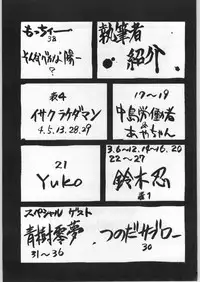 執筆者
紹介
もっちぃー
32
そんなバカな陽一
?
17〜19
中島労働者
&
あやちゃん
表4
イサクラクダマン
4.5.13.28.29
3.6〜12.14〜16.20
22〜27
鈴木忍
表1
21
Yuko
スペシャル ゲスト
青樹零夢
31〜36
つのだサブロー
30